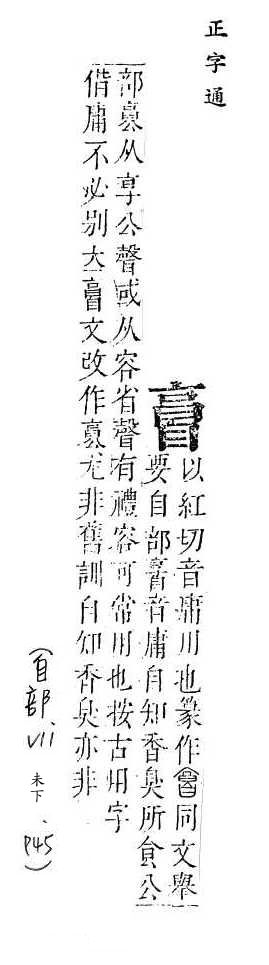 正字通
𦤘以紅切音庸用也篆作𦤘同文舉
要自部𦤘音庸自知香臭所食公
部𦤘从享公聲或从容省聲有禮容可常用也按古用字
偕庸不必別大𦤘文改作𦤘尤非舊訓自知香臭亦非
(自部、VII
未下、
P45)